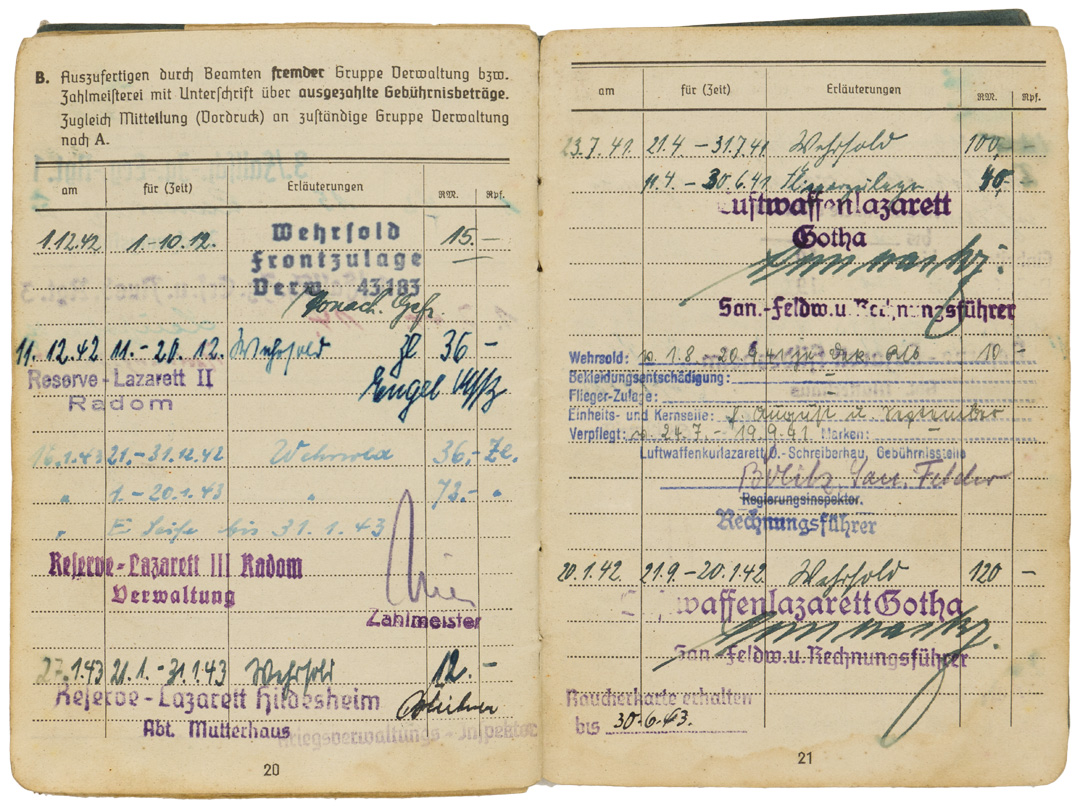 B. Auszufertigen durch Beamten fremder Gruppe Verwaltung bzw.
Zahlmeisterei mit Unterschrift über ausgezahlte Gebührnisbeträge.
Zugleich Mitteilung (Vordruck) an zuständige Gruppe Verwaltung
nach A.
am für (Zeit) Erläuterungen RM. Rpf.
1.12.42 1.-10.12. Wehrsold 15.-
Frontzulage
Verw. 43183
Gefr.
11.12.42 11.-20.12. Wehrsold Zl 36 -
Reserve-Lazarett II Engel Uffz
Radom
16.1.43 21.-31.12.42 Wehrsold 36,- Zl.
" 1.-20.1.43 " 72.- "
" E Seife bis 31.1.43
Reserve-Lazarett III Radom
Verwaltung
Zahlmeister
27.1.43 21.1.-31.1.43 Wehrsold 12.-
Reserve-Lazarett Hildesheim
Abt. Mutterhaus Kriegsverwaltungs-Inspektor
20
am für (Zeit) Erläuterungen RM. Rpf.
23.7.41. 21.4-31.7.41 Wehrsold 100,-
11.4.-30.6.41 40.-
Luftwaffenlazarett
Gotha
San.-Feldw.u.Rechnungsführer
Wehrsold: 1.8.-20.9.41 10 -
Bekleidungsentschädigung:
Flieger-Zulage:
Einheits- und Kernseife: f. August u. September
Verpflegt: 24.7.-19.9.41 Marken: -
Luftwaffenkurlazarett O.-Schreiberhau, Gebührnisstelle
San. Feldw
Regierungsinspektor.
Rechnungsführer
20.1.42 21.9.-20.1.42 Wehrsold 120 -
waffenlazarett Gotha
San.-Feldw.u.Rechnungsführer
Raucherkarte erhalten
bis 30.6.43.
21